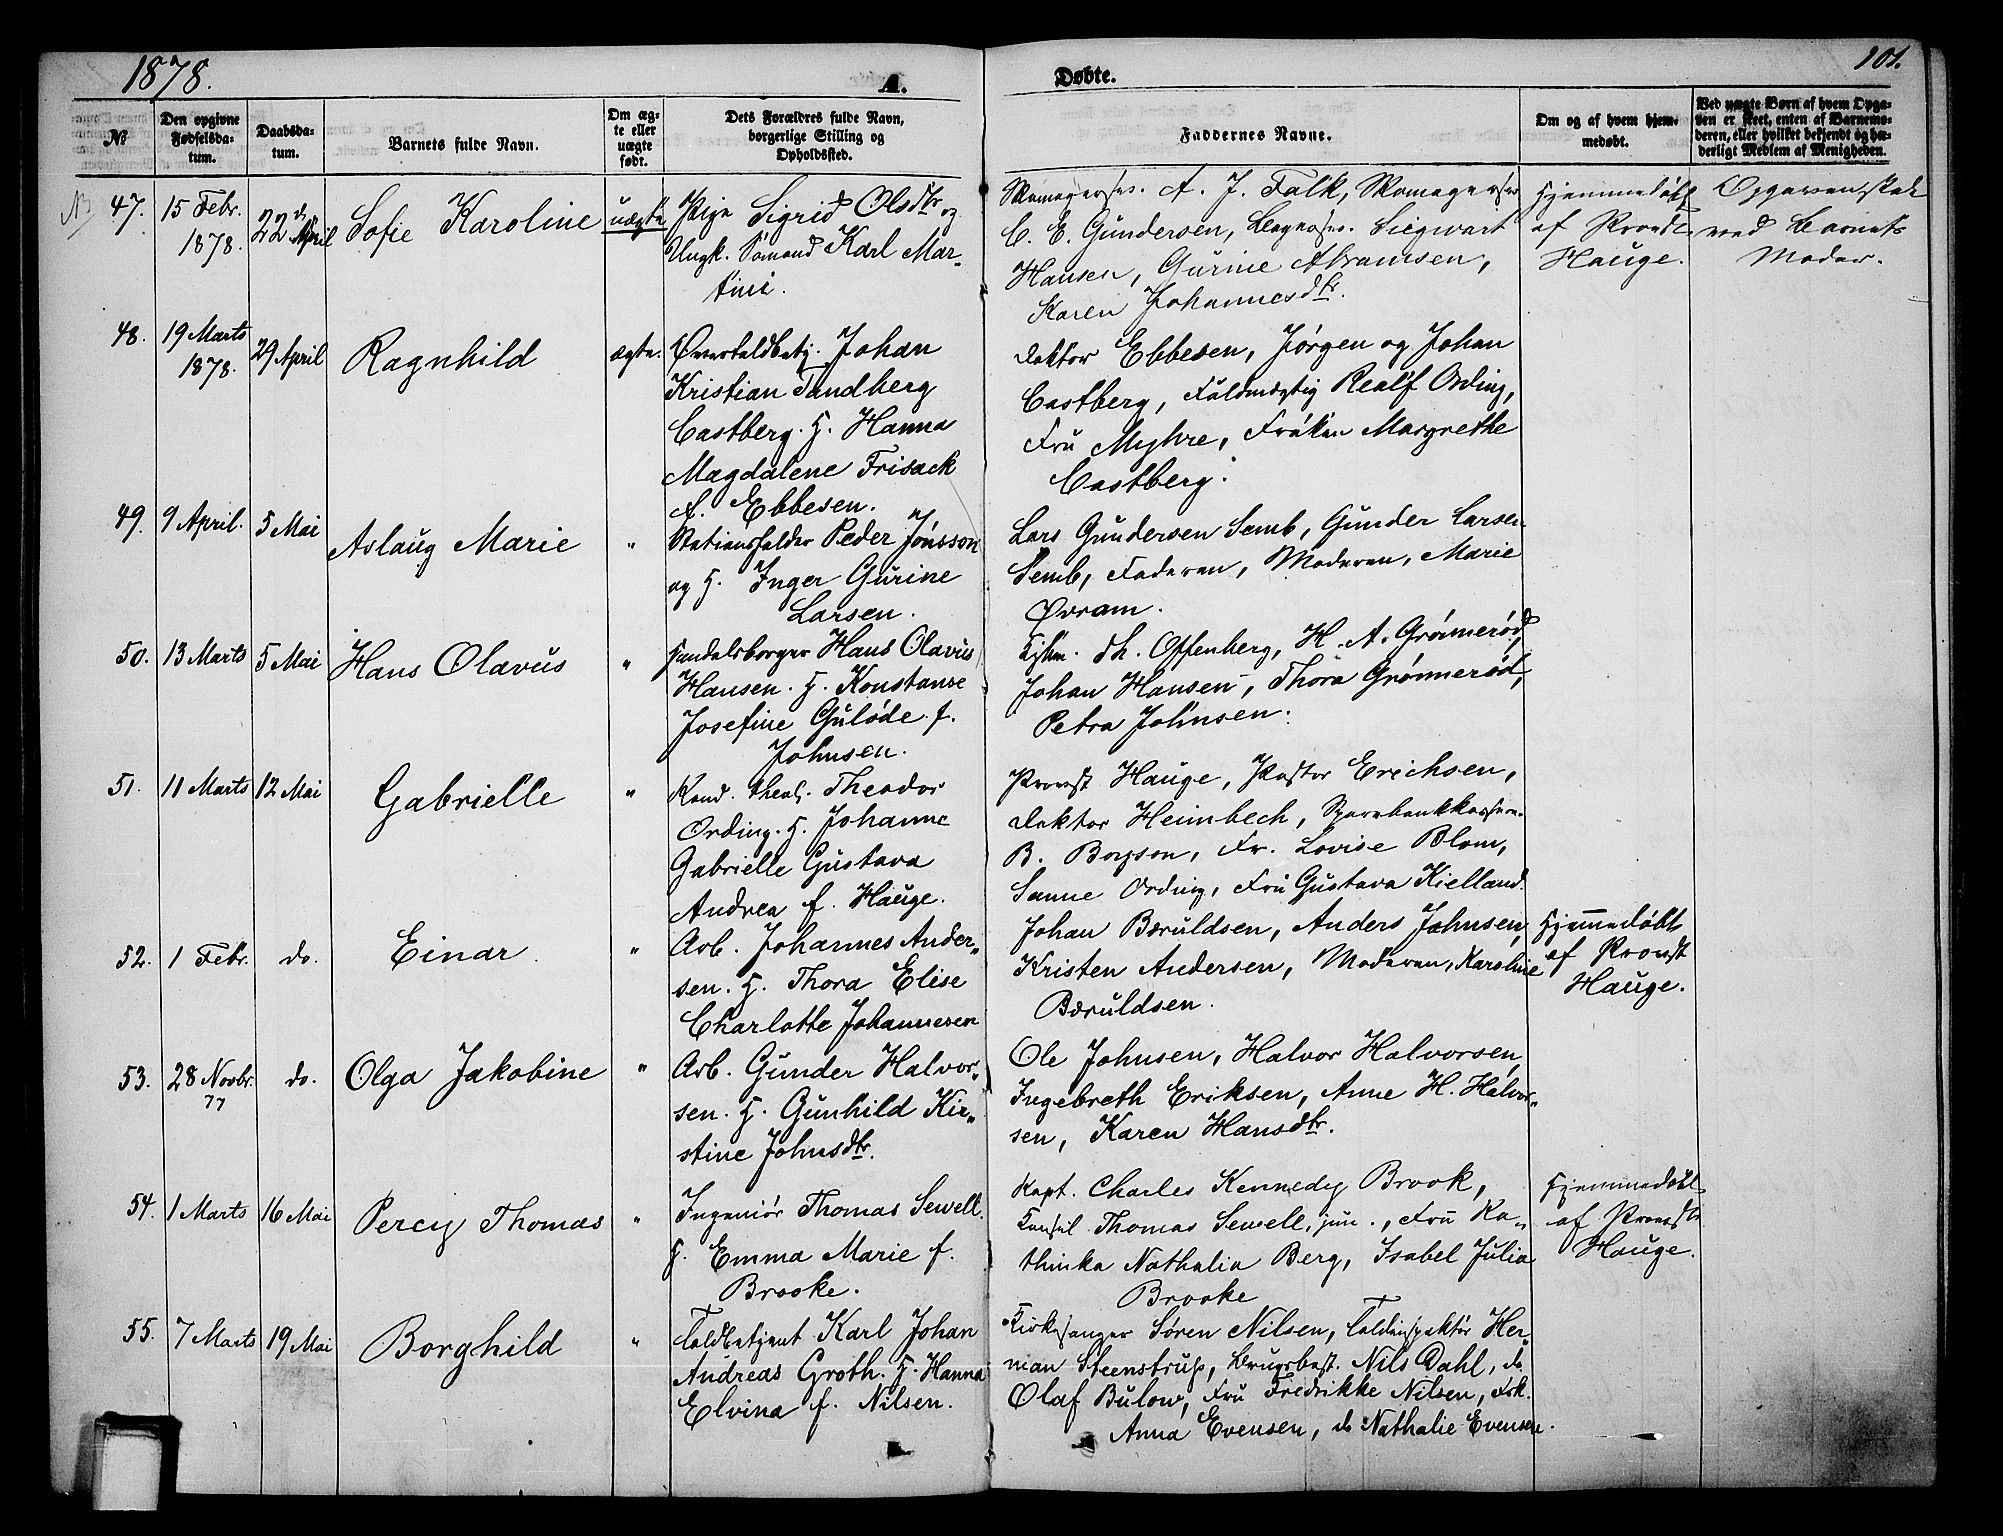 1878.
A.
Døbte.
101.
No
Den opgivne Fødselsda-
tum.
Daabsda-
tum.
Barnets fulde Navn.
Om æg-
te eller
uægte
født.
Dets Forældres fulde Navn,
borgerlige Stilling og
Opholdssted.
Faddernes Navne.
Om og af hvem hjem-
medøbt.
Ved uægte Børn af hvem Opga-
ven er skeet, enten af Barnemo-
deren, eller hvilket bekjendt og hæ-
derligt Medlem af Menigheden.
47.
15 Febr.
1878.
22d April
Sofie Karoline
uægte
Pige Sigrid Olsdtr og
Ungk. Sømand Karl Mar-
tini.
Skomagersv. A. J. Falk, Skomagersv.
C. E. Gundersen, Siegwart
Hansen, Gurine Abramsen,
Karen Johannesdtr.
Hjemmedøbt
af Provst
Hauge.
Opgaven skete
ved Barnets
Moder.
48.
19 Marts
1878.
29 April
Ragnhild
ægte.
Overtoldbetj. Johan
Kristian Tandberg
Castberg. H. Hanna
Magdalene Frisack
f. Ebbesen.
Doktor Ebbesen, Jørgen og Johan
Castberg, Fuldmægtig Realf Ording,
Fru Myhre, Frøken Margrethe
Castberg.
49.
9 April.
5 Mai
Aslaug Marie
"
Stationsholder Peder Jonsson
og H. Inger Gurine
Larsen.
Lars Gundersen Semb, Gunder Larsen
Semb, Faderen, Moderen, Marie
Øvram.
50.
13 Marts
5 Mai
Hans Olavus
"
Handelsborger Hans Olavus
Hansen. H. Konstanse
Josefine Guløde f.
Johnsen.
Kjbm. Th. Offenberg, H. A. Grønnerød,
Johan Hansen, Thora Grønnerød,
Petra Johnsen.
51.
11 Marts
12 Mai
Gabrielle
"
Kand. theol. Theodor
Ording. H. Johanne
Gabrielle Gustava
Andrea f. Hauge.
Provst Hauge, Pastor Erichsen,
Doktor Heimbech, Sparebankkasserer
B. Boyson, Fr. Lovise Blom,
Sanne Ording, Fru Gustava Kielland.
52.
1 Febr.
do.
Einar
"
Arb. Johannes Ander-
sen. H. Thora Elise
Charlotte Johannesen
Johan Bæruldsen, Anders Johnsen,
Kristen Andersen, Moderen, Karoline
Bæruldsen.
Hjemmedøbt
af Provst
Hauge.
53.
28 Novbr.
77
do.
Olga Jakobine
"
Arb. Gunder Halvor-
sen. H. Gunhild Kir-
stine Johnsdtr.
Ole Johnsen, Halvor Halvorsen,
Ingebreth Eriksen, Anne H. Halvor-
sen, Karen Hansdtr.
54.
1 Marts
16 Mai
Percy Thomas
"
Ingeniør Thomas Sewell.
H. Emma Marie f.
Brooke.
Kapt. Charles Kennedy Brook,
Konsul Thomas Sewell, jun., Fru Ka-
thinka Nathalia Berg, Isabel Julia
Brooke
Hjemmedøbt
af Provst
Hauge.
55.
7 Marts
19 Mai
Borghild
"
Toldbetjent Karl Johan
Andreas Groth. H. Hanna
Elvina f. Nilsen.
Kirkesanger Søren Nilsen, Toldinspektør Her-
man Steenstrup, Brugsbest. Nils Dahl, do
Olaf Bulow, Fru Fredrikke Nilsen, Frk.
Anna Evensen, do Nathalie Evensen.